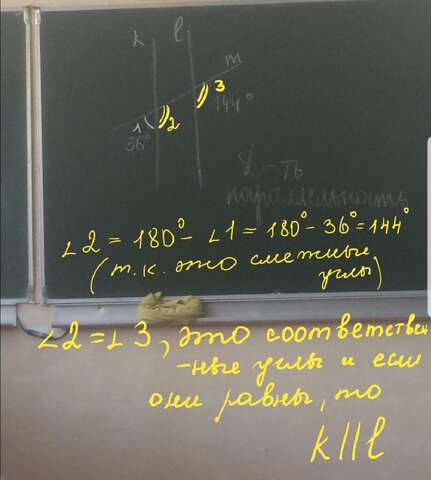 k l
m
3
144°
1 2
36°
Д-ть
паралельность
∠2 = 180° - ∠1 = 180° - 36° = 144°
(т.к. это смежные
углы)
∠2 = ∠3, это соответствен
-ные углы и если
они равны, то
k || l